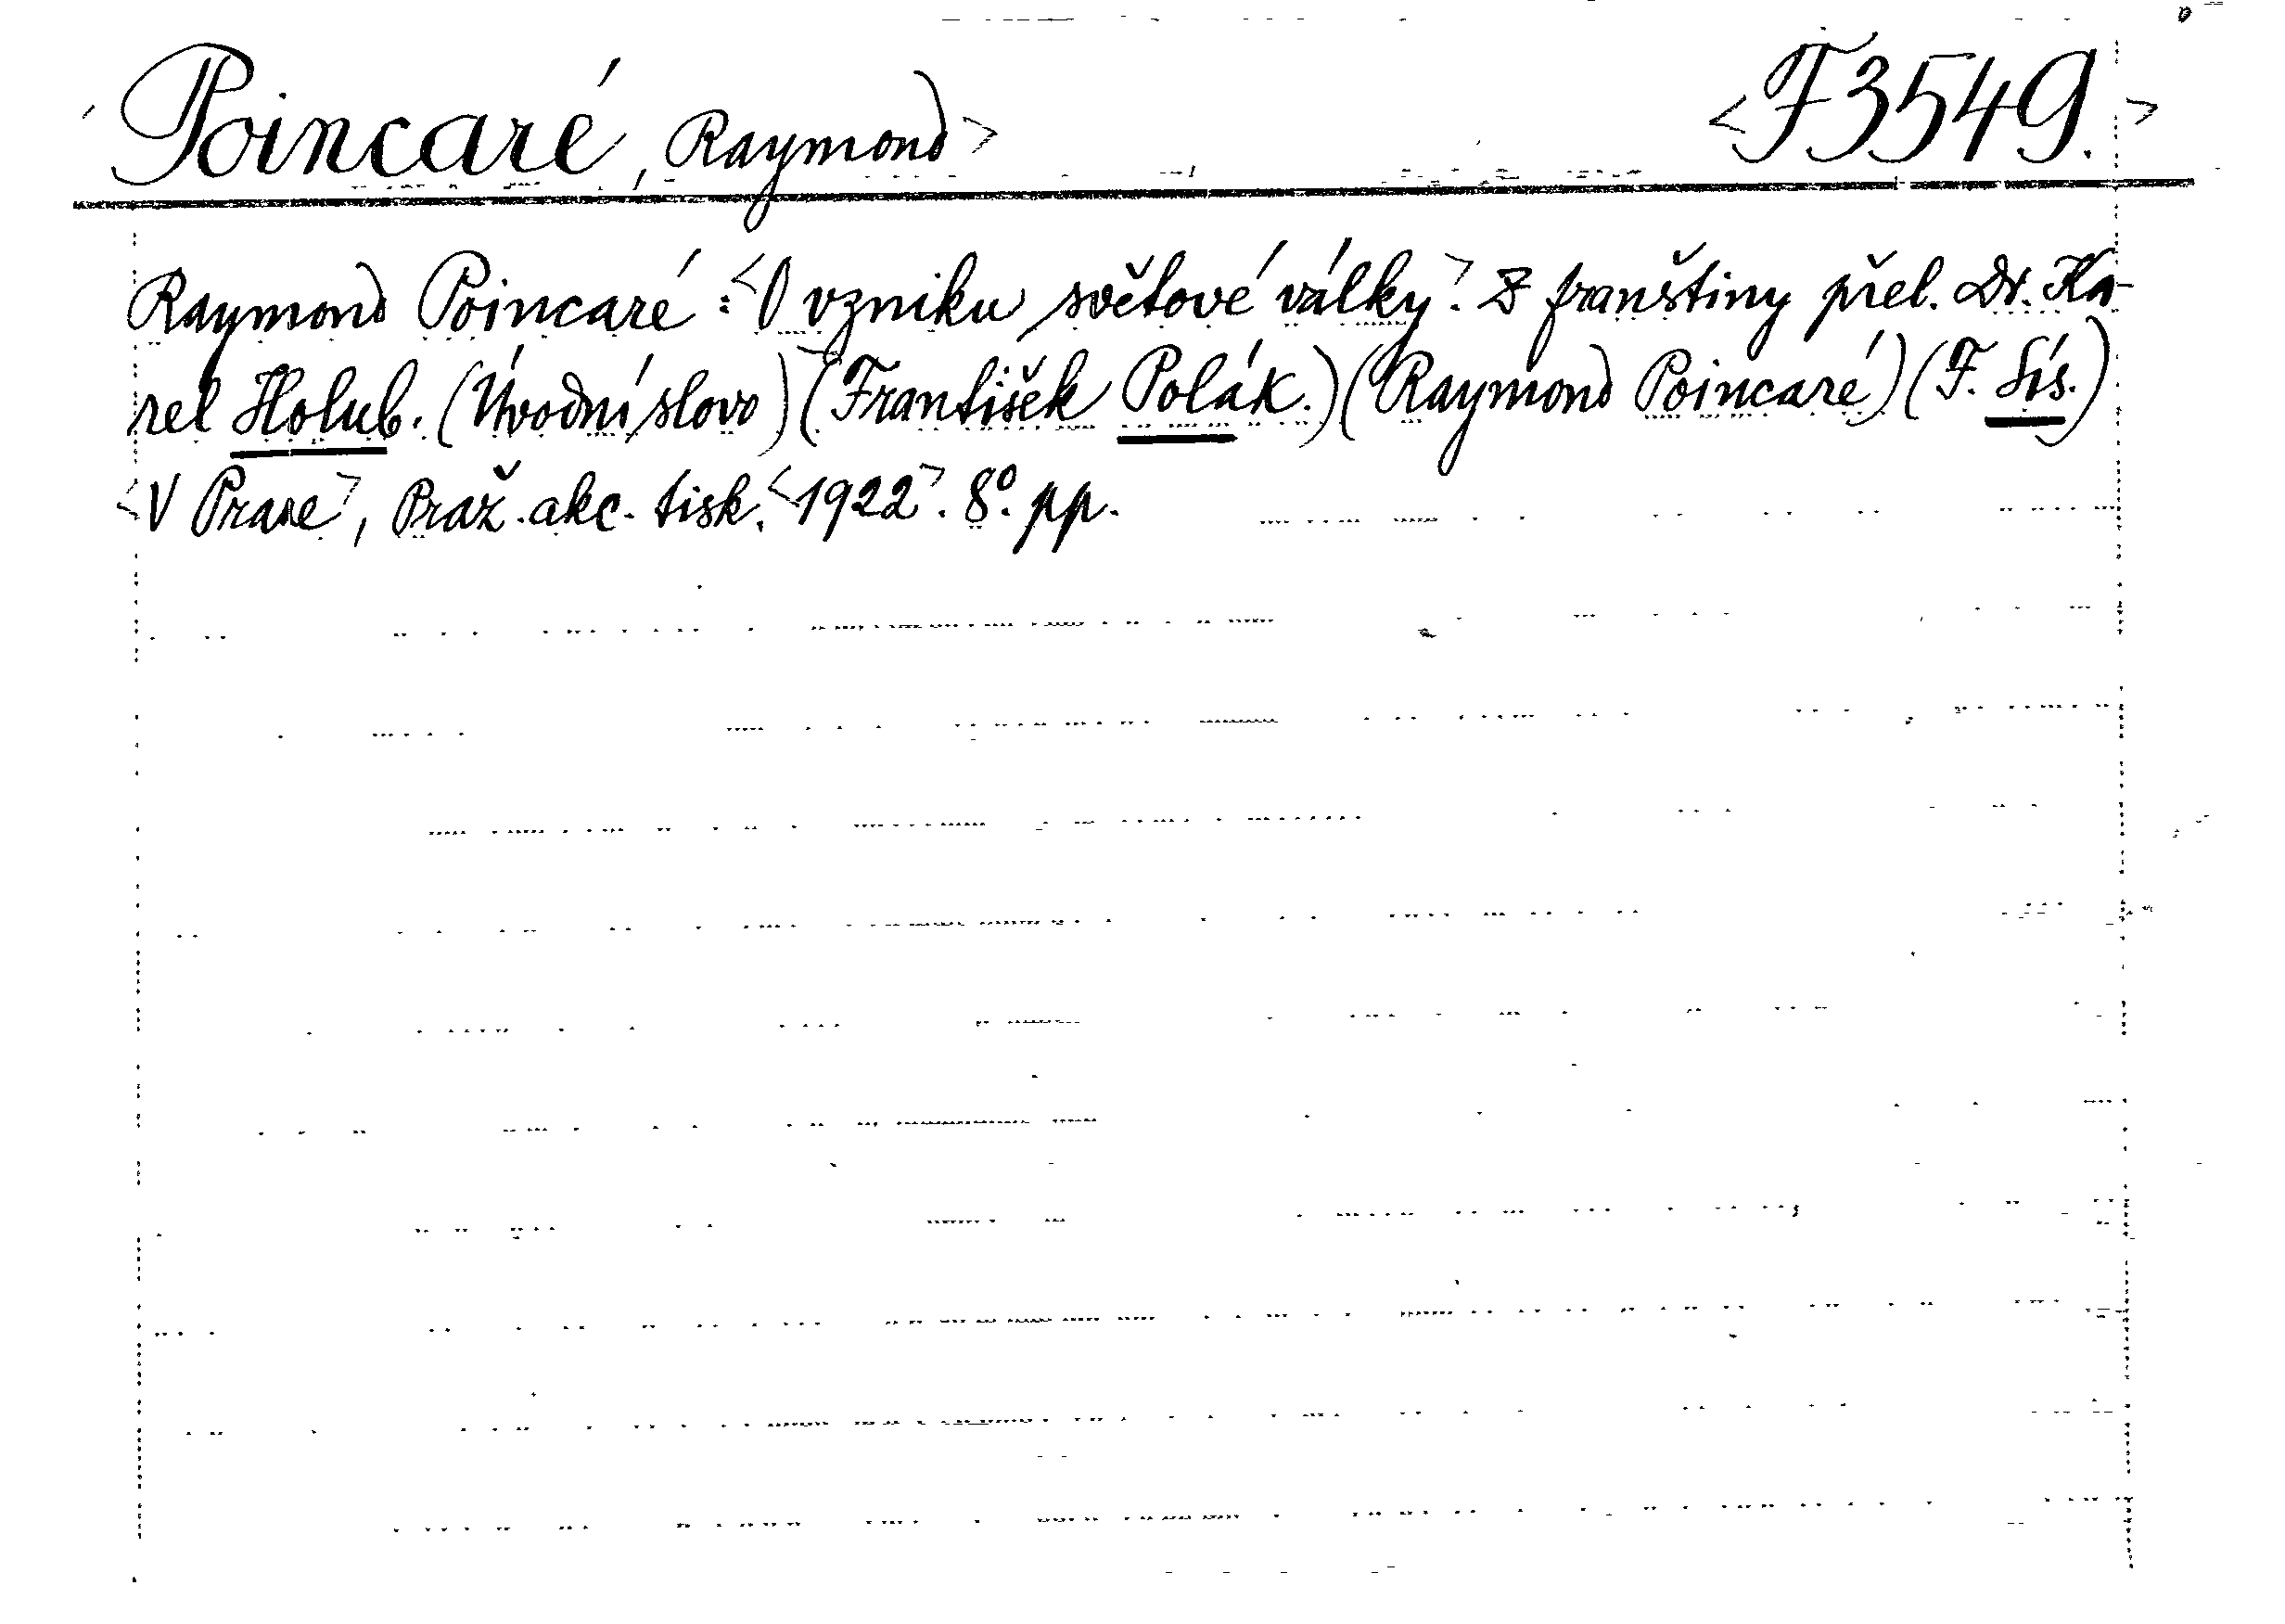 Poincaré, Raymond> <F3549.>
Raymond Poincaré: <O vzniku světové války>. Z franštiny přel. Dr. Ka-
rel Holub. (Úvodní slovo) (František Polák.) (Raymond Poincaré) (F. Sís.)
<V Praze>, Praž. akc. tisk. <1922>. 8°. pp.